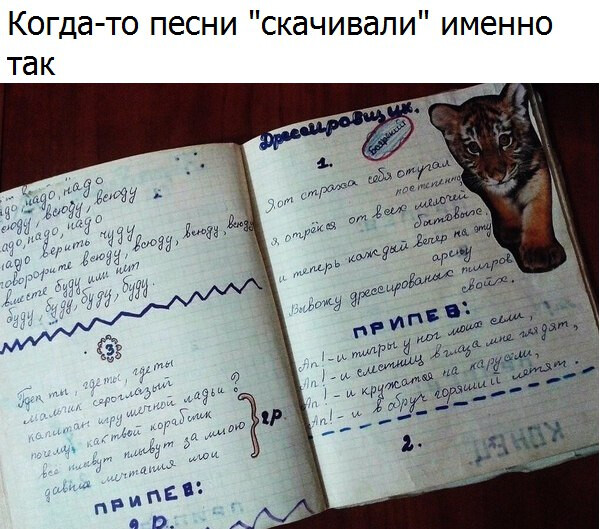 Когда-то песни "скачивали" именно
так
надо, надо
всюду, всюду, всюду
надо, надо, надо
надо верить чуду
всюду, всюду, всюду, всюду
вместе буду или нет
буду, буду, буду, буду.
3
Где ты, где ты, где ты
мальчик сероглазый
капитан игрушечной ладьи?
почему, как твой кораблик
все плывут плывут за мною
давние мечтания мои
2р.
ПРИПЕВ:
2 р.
Дрессировщик.
1.
Я от страха себя отучал
постепенно
я, отрёкся от всех мелочей
бытовых.
и теперь каждый вечер на эту
арену
Вывожу дрессированых тигров
своих.
ПРИПЕВ:
Ап! - и тигры у ног моих сели,
Ап! - и с лестниц в глаза мне глядят,
Ап! - и кружатся на карусели,
Ап! - и в обруч горящий летят.
2.
КОНЕЦ